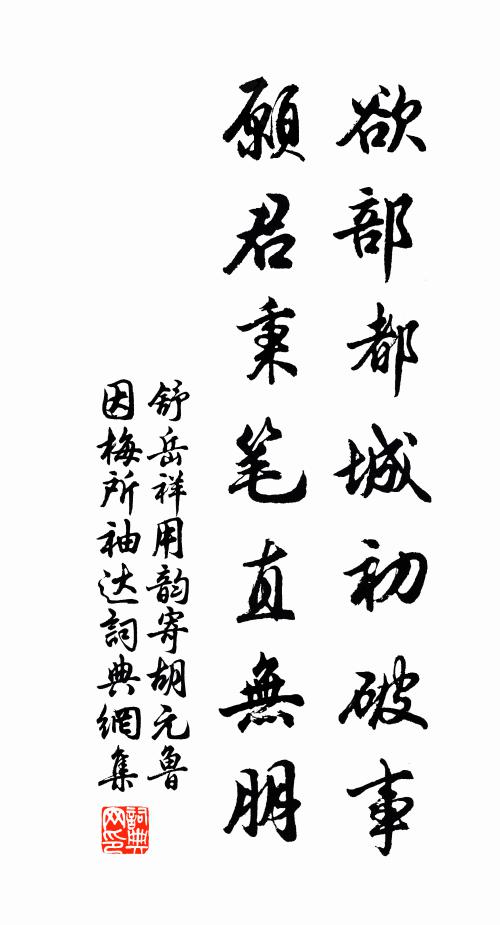 欲部都城初破事
願君秉笔直無朋
舒岳祥用韵寄胡元魯
因梅所袖达詞典網集
詞典网印